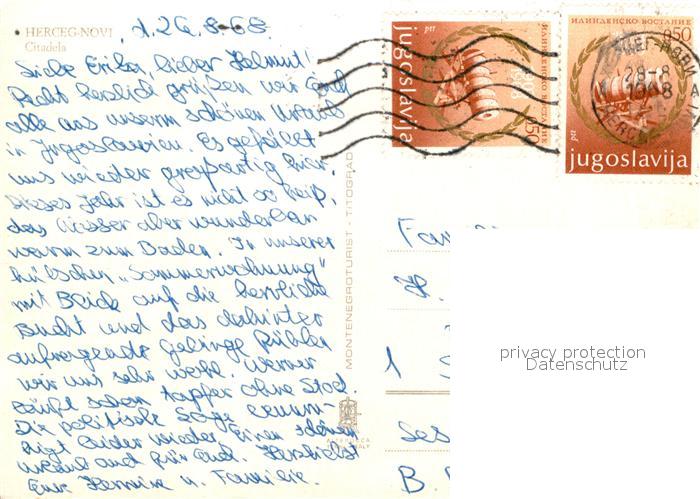 HERCEG-NOVI
Citadela
, d. 26.8.68.
Liebe Erika, lieber Helmut!
Recht herzlich grüßen wir Euch
alle aus unserm schönen Urlaub
in Jugoslawien. Es gefällt
uns wieder großartig hier.
Dieses Jahr ist es nicht so heiß,
das Wasser aber wunderbar
warm zum Baden. In unserer
hübschen „Sommerwohnung"
mit Blick auf die herrliche
Bucht und das dahinter
aufragende Gebirge fühlen
wir uns sehr wohl. Werner
läuft schon tapfer ohne Stock.
Die politische Lage
leider wieder. Einen schönen
Urlaub auch für Euch. Herzlichst
Eure Hermine u. Familie.
MONTENEGROTURIST - TITOGRAD
ptt
jugoslavija
ИЛИНДЕНСКО ВОСТАНИЕ
0.50
ИЛИНДЕНСКО ВОСТАНИЕ
0.50
28-8
1968
ptt
jugoslavija
Fam
H.
1
Ses
B.
privacy protection
Datenschutz